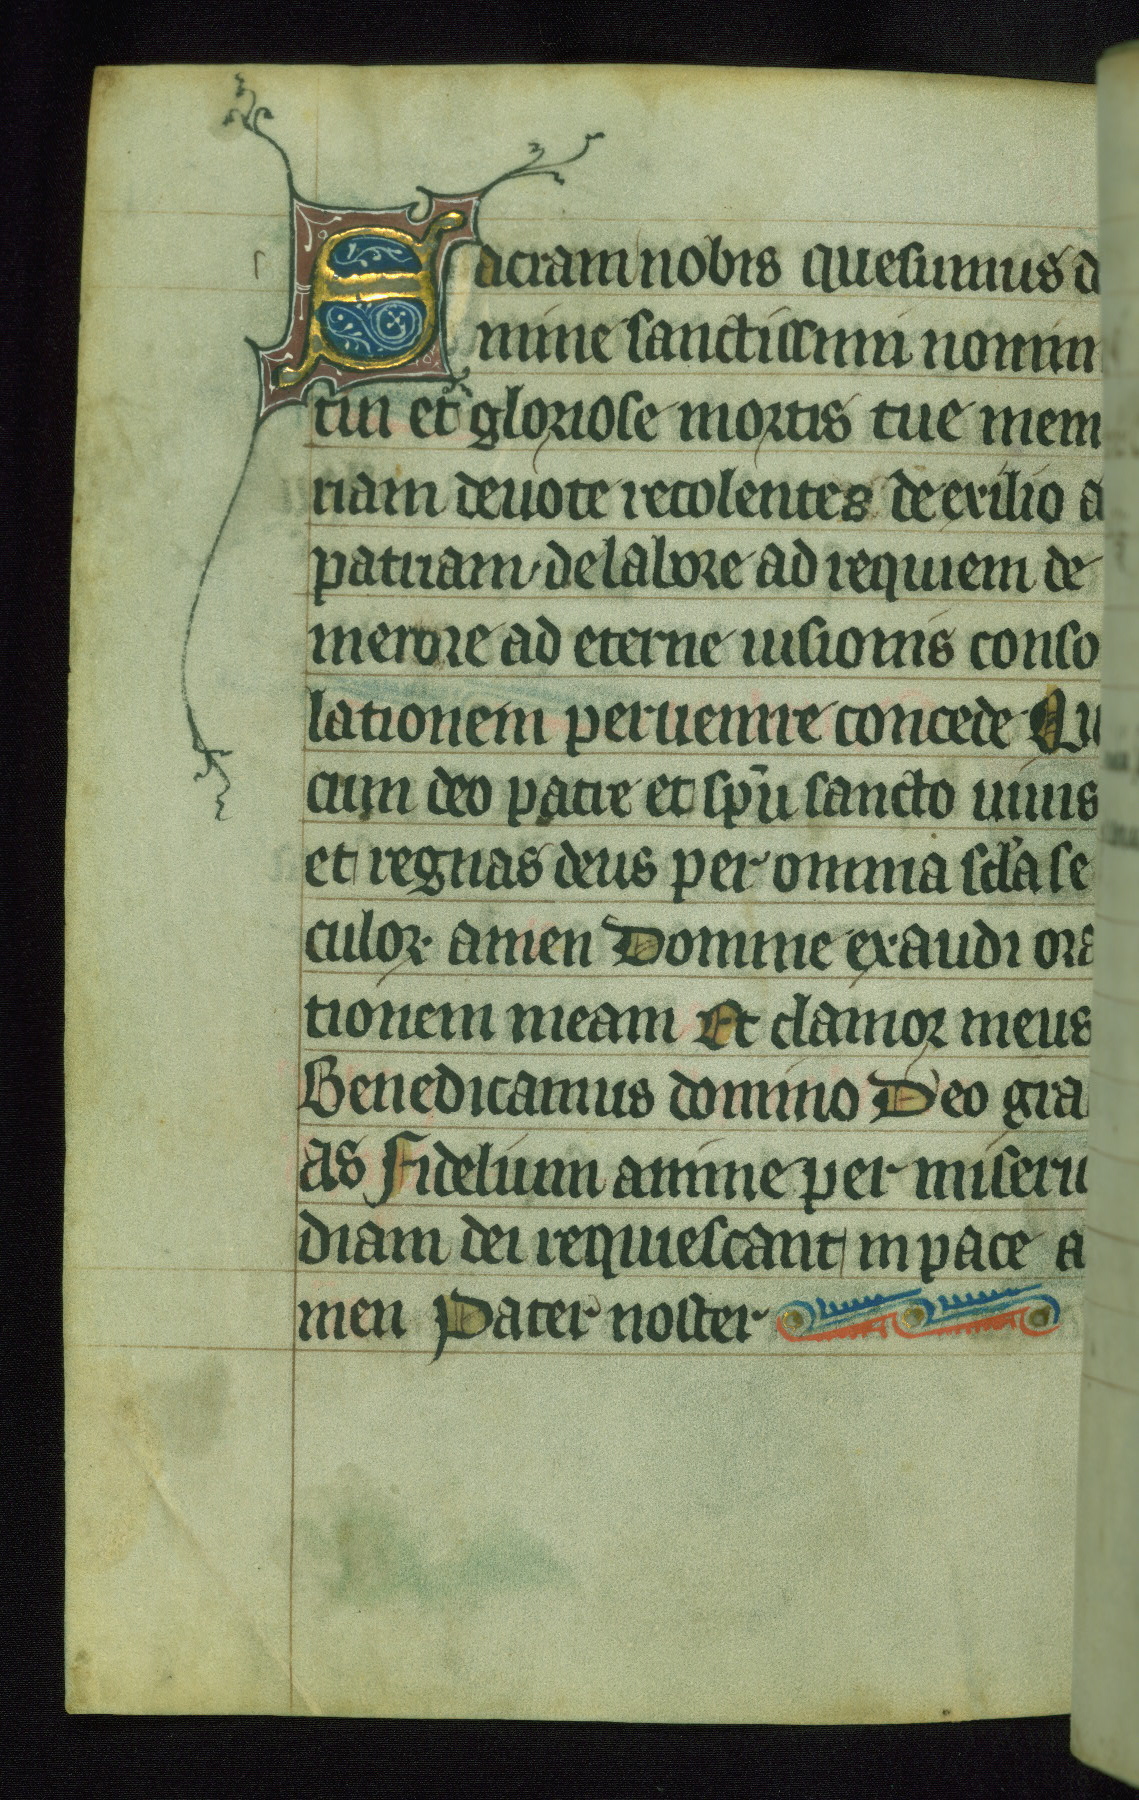 Sacram nobis quesumus d
mine sanctissimi nomin
tui et gloriose mortis tue mem
riam deuote recolentes de exilio a
patriam de labore ad requiem de
merore ad eterne uisionis conso
lationem peruenire concede Qu
cum deo patre et sp̄u sancto uiuis
et regnas deus per omnia scl̄a se
culoꝝ amen Domine exaudi ora
tionem meam Et clamor meus
Benedicamus domino Deo gra
as Fidelium anime per miseri
diam dei requiescant in pace a
men Pater noster